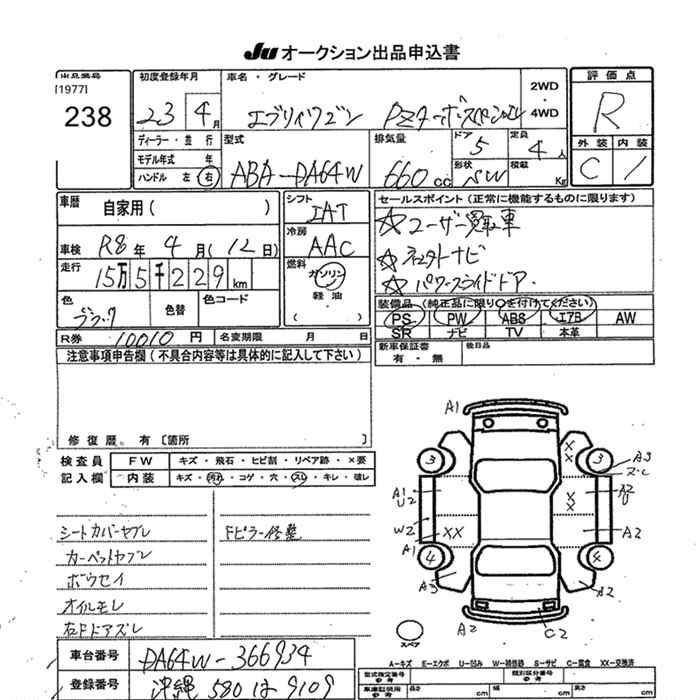 JU オークション出品申込書
出品番号
[1977]
238
初度登録年月
23 4月
車名・グレード
エブリイワゴン PZターボスペシャル
2WD
・
4WD
評価点
R
外装 内装
C 1
ディーラー・並行
モデル年式 年
ハンドル 左 右
型式
ABA-DA64W
排気量
660cc
ドア
5
形状
SW
定員
4人
積載
Kg
車歴
自家用( )
車検 R8年 4月(12日)
走行
15万5千229km
色
ブラック
色替
色コード
シフト
IAT
冷房
AAC
燃料
ガソリン
・
軽油
( )
セールスポイント(正常に機能するものに限ります)
☆ユーザー買取車
☆ネクストナビ
☆パワースライドドア
装備品(純正品に限り○を付けてください)
PS PW ABS エアB AW
SR ナビ TV 本革
新車保証書
有・無
後日品
R券 10010円
名変期限 月 日
注意事項申告欄(不具合内容等は具体的に記入して下さい)
修復歴. 有[箇所 ]
検査員
記入欄
FW キズ・飛石・ヒビ割・リペア跡・×要
内装 キズ・汚れ・コゲ・穴・スレ・キレ・破レ
シートカバーヤブレ
カーペットヤブレ
ボウセイ
オイルモレ
右Fドアズレ
Fピラー修整
A1
3
3
A3
ズレ
A1
U2
A2
U
XX
XX
W2
XX
A2
A1
4
4
A3
A2
A2
C2
スペア
A-キズ E-エクボ U-凹み W-補修跡 S-サビ C-腐食 XX-交換済
車台番号 DA64W-366934
登録番号 沖縄 580 は 9109
型式指定番号
参考
類別区分番号
参考
車庫証明用
参考
長さ cm 幅 cm 高さ cm